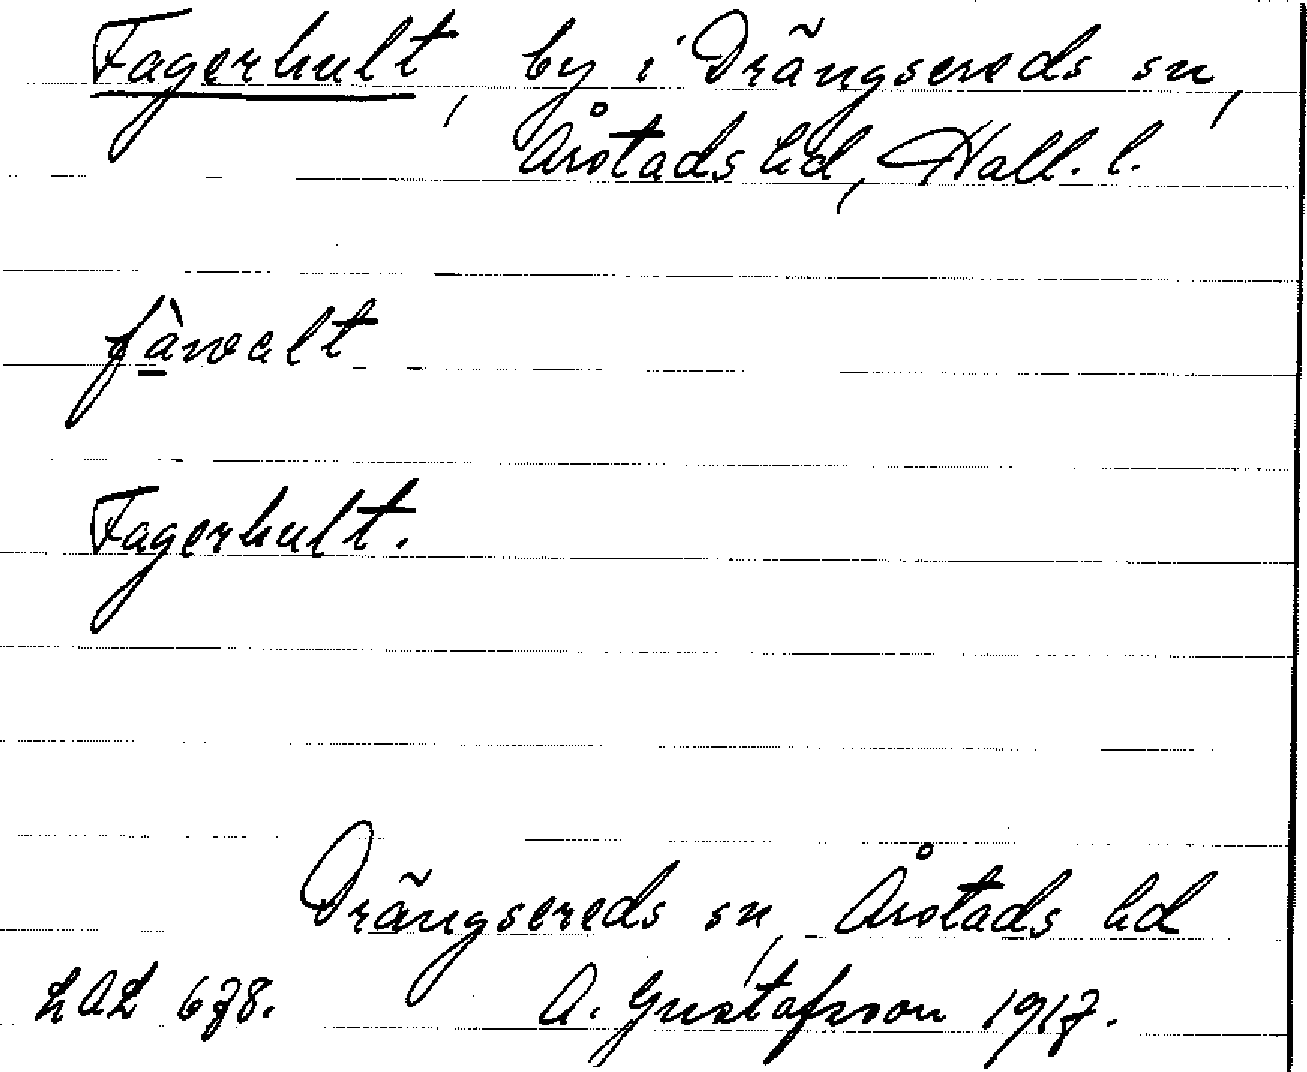 Fagerhult, by i Drängsereds sn,
Årstads hd, Hall. l.
Fagerhult.
Drängsereds sn, Årstads hd
LAL 678. A. Gustafsson 1917.